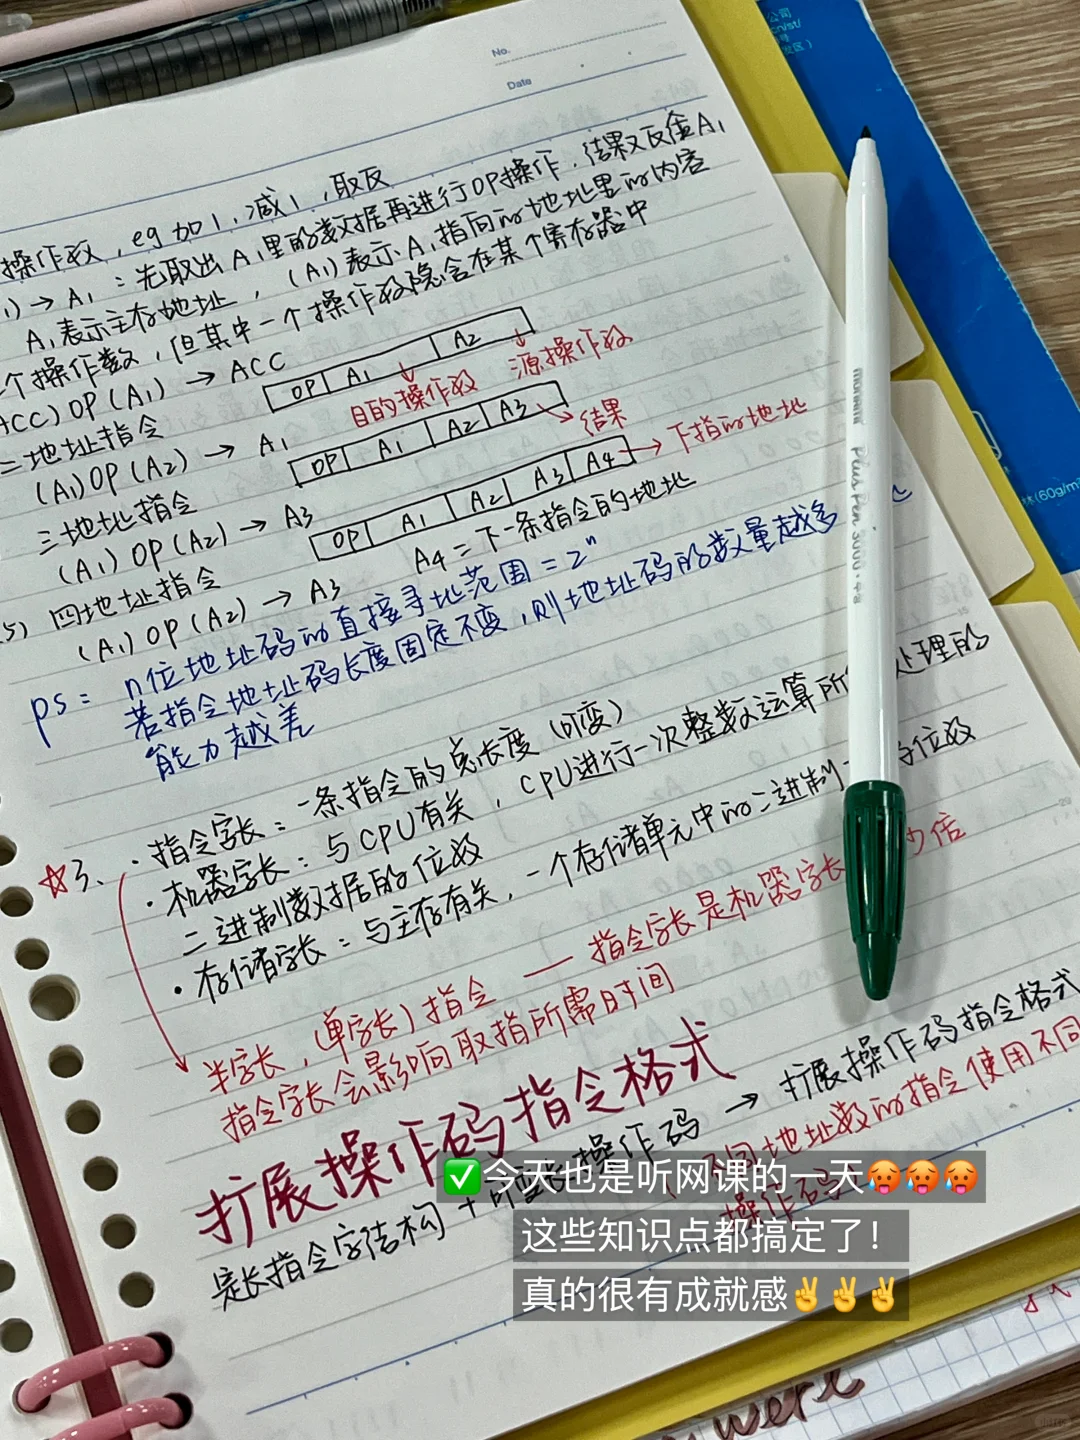 No.
Date
操作数，eg 加1，减1，取反
1)→A₁：先取出A₁里的数据再进行OP操作，结果又反金A₁
A₁表示主存地址，(A₁)表示A₁指向的地址里的内容
个操作数，但其中一个操作数隐含在某个寄存器中
ACC)OP(A₁) → ACC
OP A₁ A₂
目的操作数
源操作数
二地址指令
(A₁)OP(A₂) → A₁
OP A₁ A₂ A₃
结果
三地址指令
(A₁)OP(A₂) → A₃
OP A₁ A₂ A₃ A₄
下指的地址
5) 四地址指令
A₄=下一条指令的地址
(A₁)OP(A₂) → A₃
ps：n位地址码的直接寻地范围=2ⁿ
若指令地址码长度固定不变，则地址码的数量越多
能力越差
☆3、·指令字长：一条指令的总长度（可变）
·机器字长：与CPU有关，CPU进行一次整数运算所 处理的
二进制数据的位数
·存储字长：与主存有关，一个存储单元中的二进制 位数
半字长，(单字长)指令 — 指令字长是机器字长 少倍
指令字长会影响取指所需时间
扩展操作码指令格式
定长指令字结构+可变长操作码 → 扩展操作码指令格式
不同地址数的指令使用不同
操作码
✅今天也是听网课的一天🥵🥵🥵
这些知识点都搞定了！
真的很有成就感✌️✌️✌️
monami Plus Pen 3000
公司
(60g/m
were